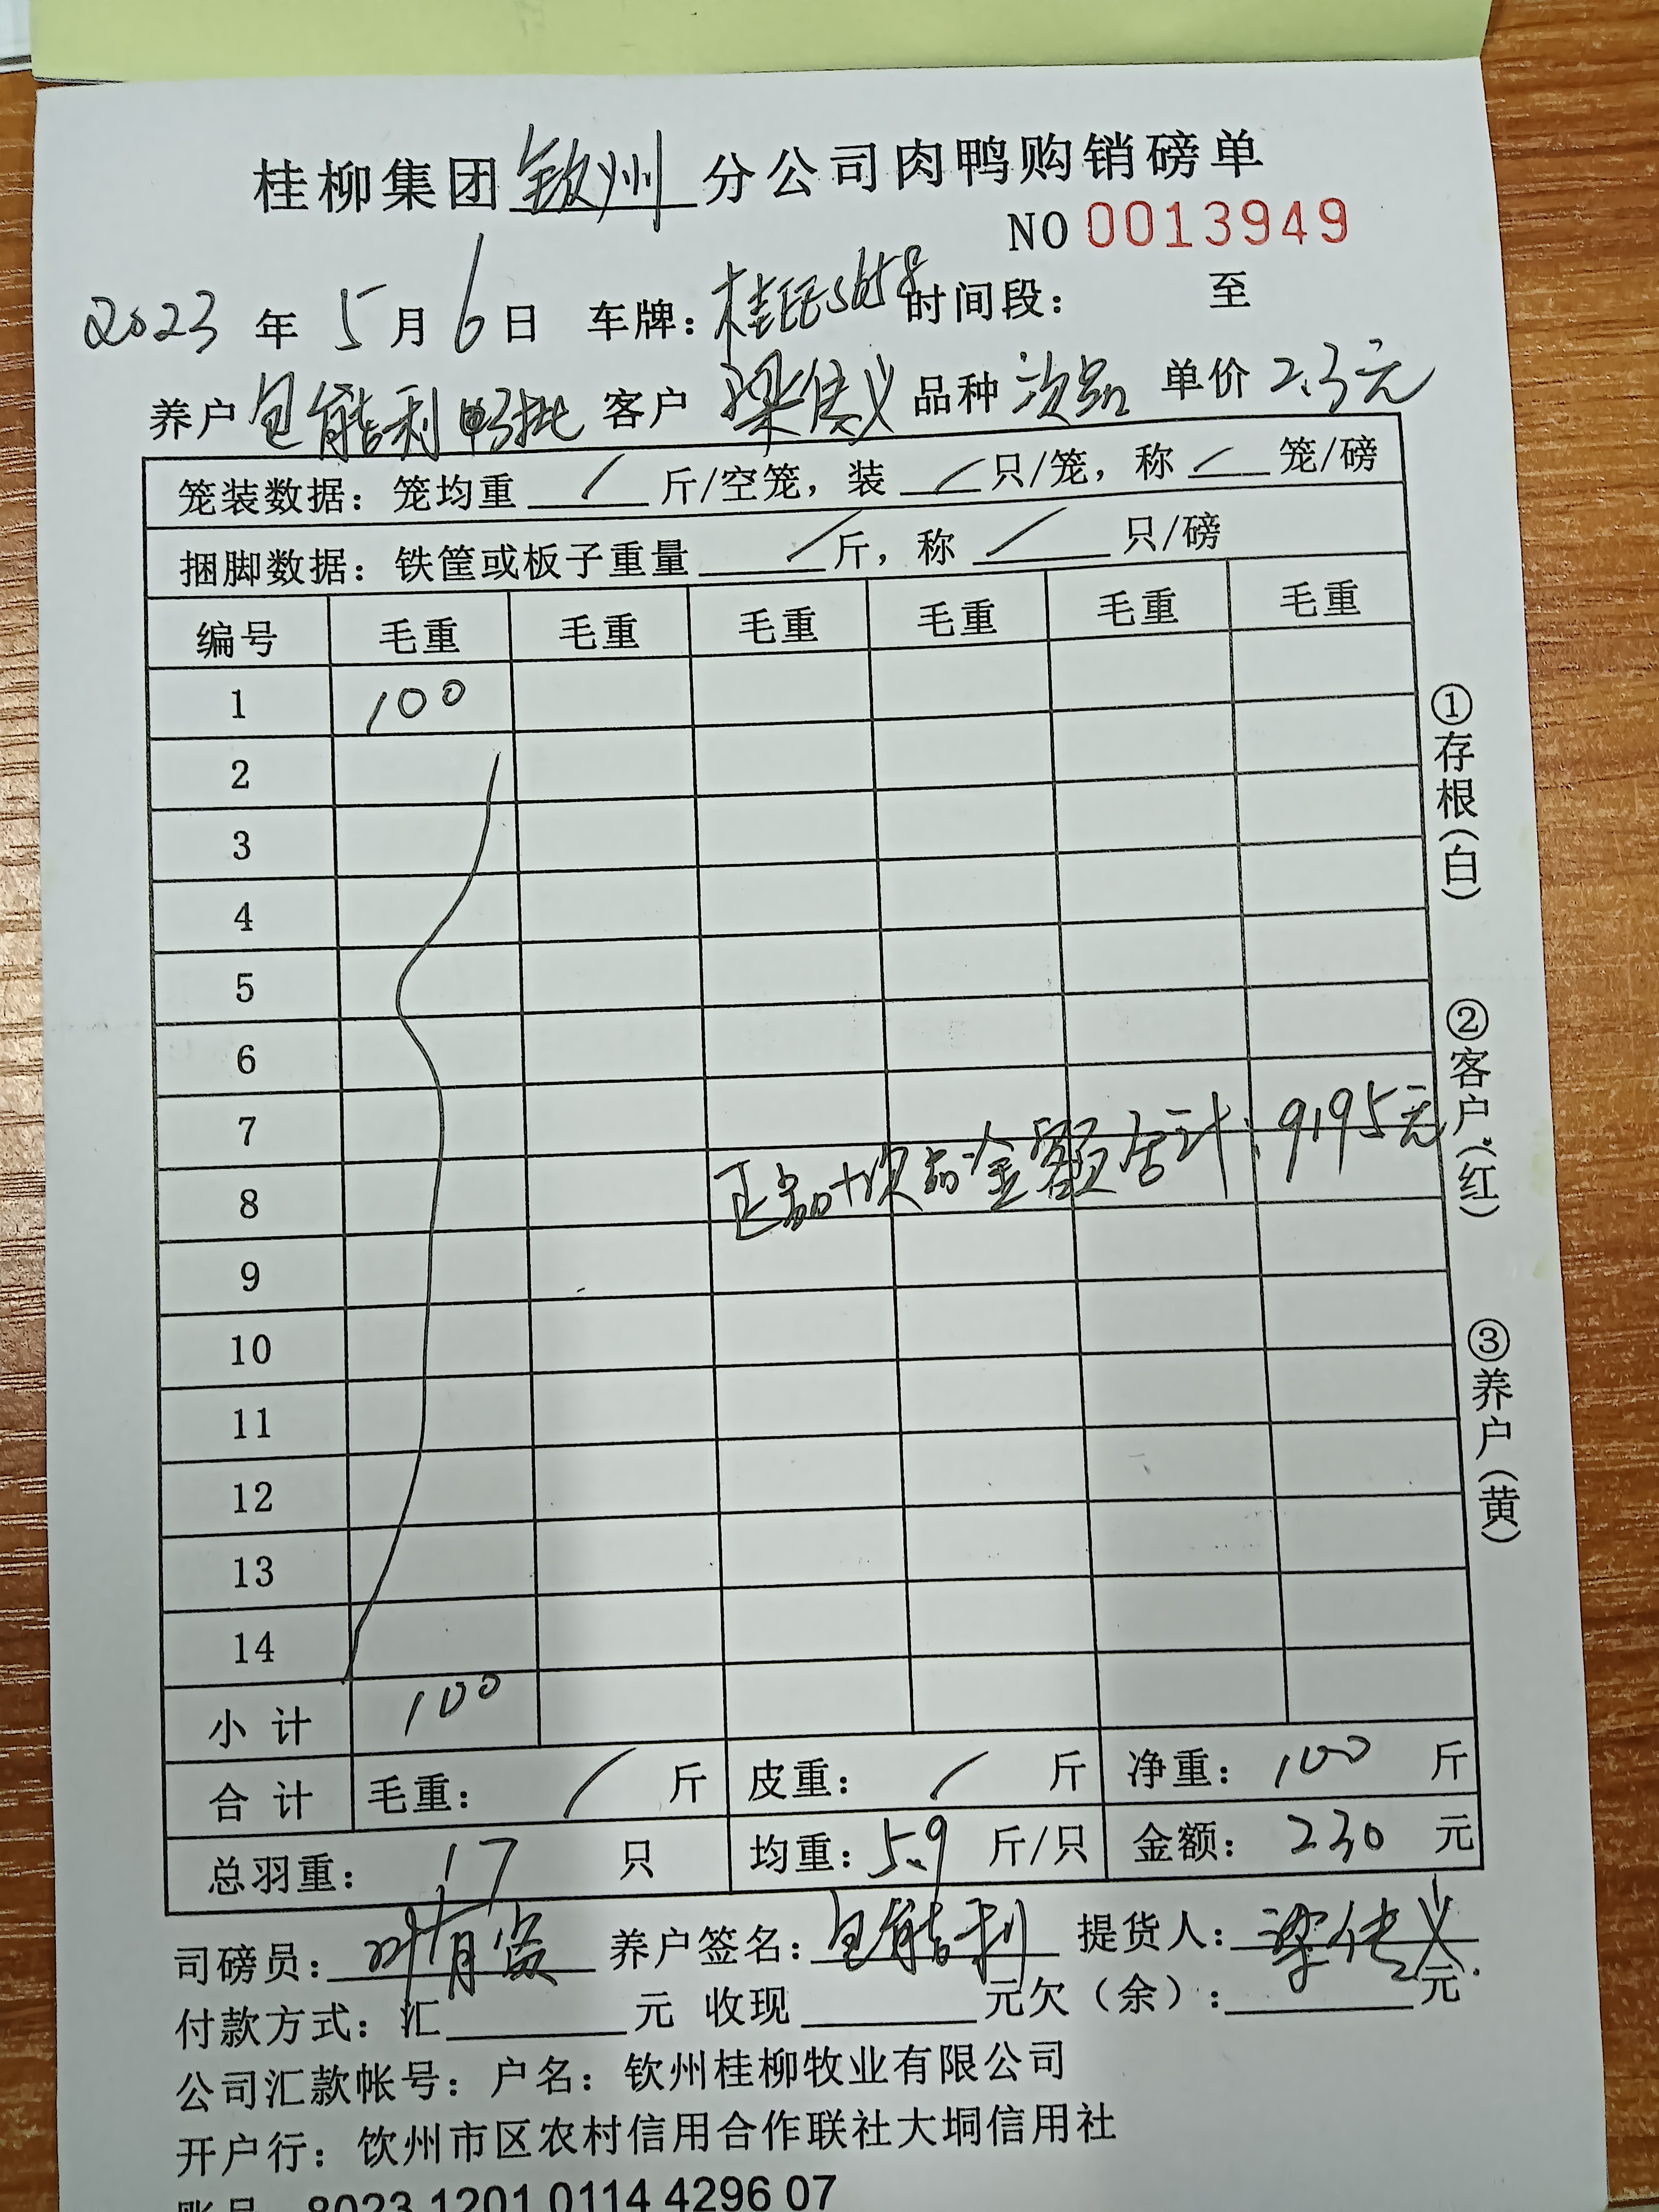 桂柳集团钦州分公司肉鸭购销磅单
NO 0013949
2023年5月6日 车牌: 时间段: 至
养户 包能利 客户 梁传义 品种 次品 单价 2.3元
笼装数据：笼均重 / 斤/空笼，装 / 只/笼，称 / 笼/磅
捆脚数据：铁筐或板子重量 / 斤，称 / 只/磅
编号 毛重 毛重 毛重 毛重 毛重 毛重
1 100
2
3
4
5
6
7
正品+次品金额合计：9195元
8
9
10
11
12
13
14
小计 100
合计 毛重： / 斤 皮重： / 斤 净重：100 斤
总羽重：17 只 均重：5.9 斤/只 金额：230 元
司磅员： 养户签名：包能利 提货人：梁传义
付款方式：汇 元 收现 元欠（余）： 元
公司汇款帐号：户名：钦州桂柳牧业有限公司
开户行：钦州市区农村信用合作联社大垌信用社
账号 8023 1201 0114 4296 07
①存根（白）
②客户（红）
③养户（黄）